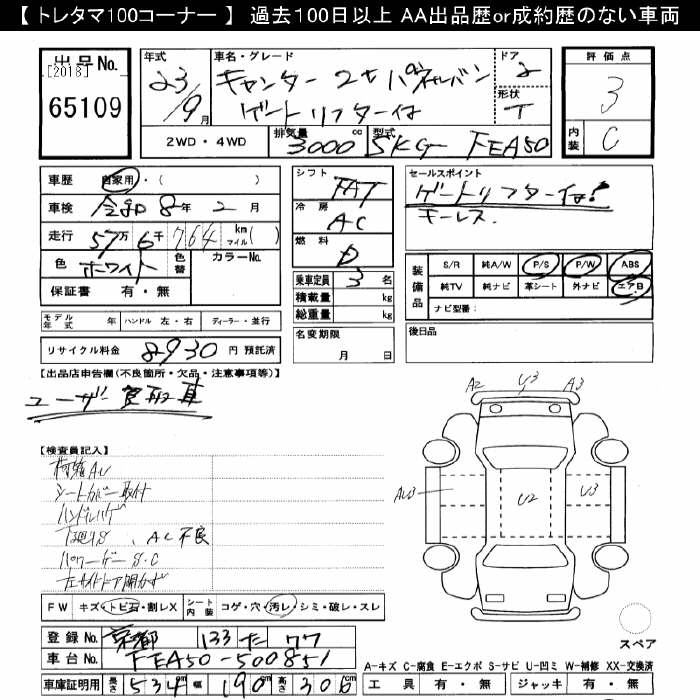 【 トレタマ100コーナー 】 過去100日以上 AA出品歴or成約歴のない車両
出品No. [2018] 65109
年式 23/9月
車名・グレード キャンター 2tパネルバン ゲートリフター付
ドア 2
形状 T
評価点 3
内装 C
2WD・4WD 排気量 3000cc 型式 SKG FEA50
車歴 自家用・( )
車検 令和 8年 2月
走行 57万 6千 764 km マイル( )
色 ホワイト 色替 カラーNo.
保証書 有・無
シフト FAT
冷房 AC
燃料 D
乗車定員 3名
積載量 kg
総重量 kg
セールスポイント
ゲートリフター付!
キーレス
装備品 S/R 純A/W P/S P/W ABS
純TV 純ナビ 革シート 外ナビ エアB
ナビ型番:
モデル年式 年 ハンドル 左・右 ディーラー・並行
名変期限 月 日
後日品
リサイクル料金 8930 円 預託済
【出品店申告欄(不良箇所・欠品・注意事項等)】
ユーザー買取車
【検査員記入】
シートカバー取付
ハンドルハゲ
下廻りS、AC不良
パワーゲートS.C
左サイドドア開かず
A2 U3 A3
AU3 U2 U3
FW キズ・トビ石・割レX シート内装 コゲ・穴・汚レ・シミ・破レ・スレ
スペア
登録No. 京都 133 た 77
車台No. FEA50-500851
A-キズ C-腐食 E-エクボ S-サビ U-凹ミ W-補修 XX-交換済
車庫証明用 長さ 534cm 幅 190cm 高さ 306cm
工具 有・無 ジャッキ 有・無